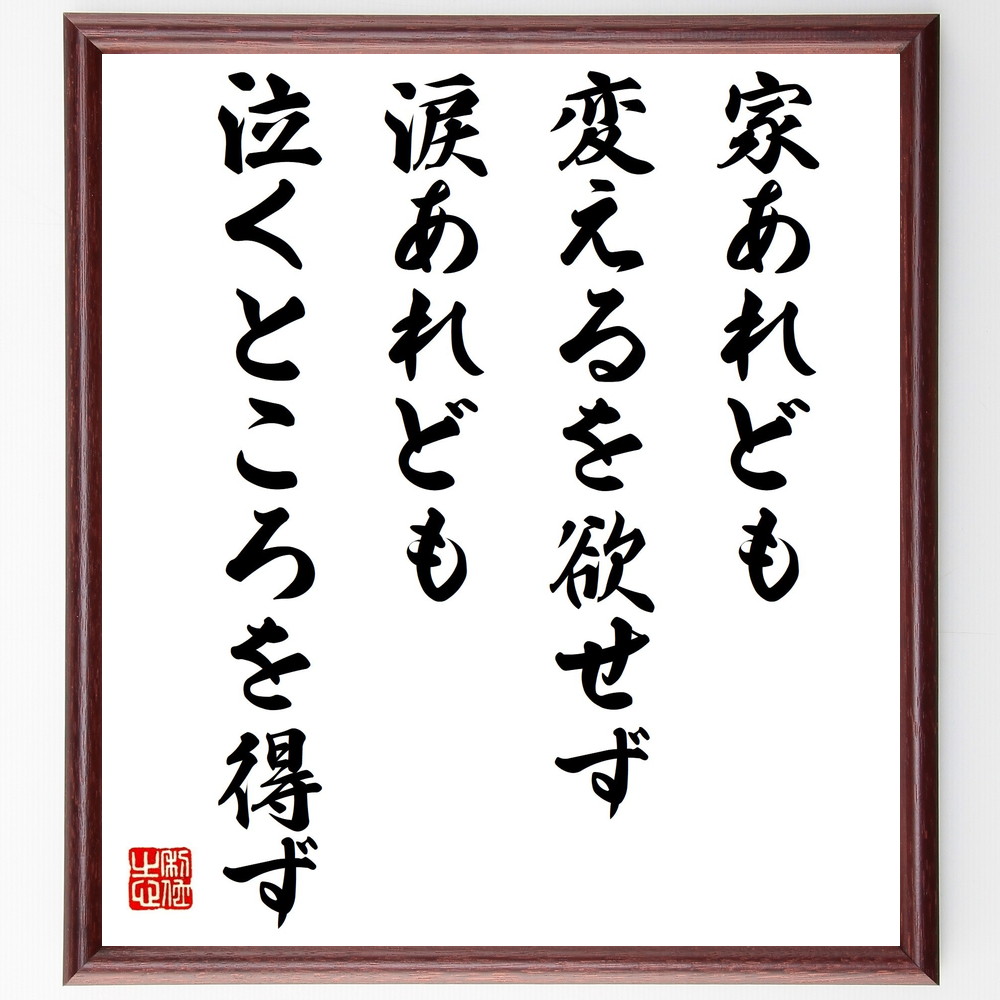 家あれども
変えるを欲せず
涙あれども
泣くところを得ず